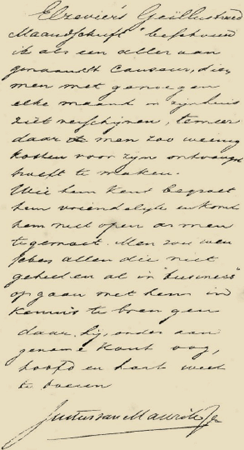 Elzevier's Geïllustreerd
Maandschrift beschouw
ik als een aller aan
genaamst causeur, dien
men met genoegen
elke maand in zijn huis
ziet verschijnen, temeer
daar men zoo weinig
kosten voor zijn ontvangst
hoeft te maken.
Wie hem kent begroet
hem vriendelijk en komt
hem met open armen
te gemoet. Men zou wen
schen allen die niet
geheel en al in "business"
op gaan met hem in
kennis te brengen
daar hij onder aan
gename kout oog,
hoofd en hart weet
te boeien
Justus van Maurik Jr